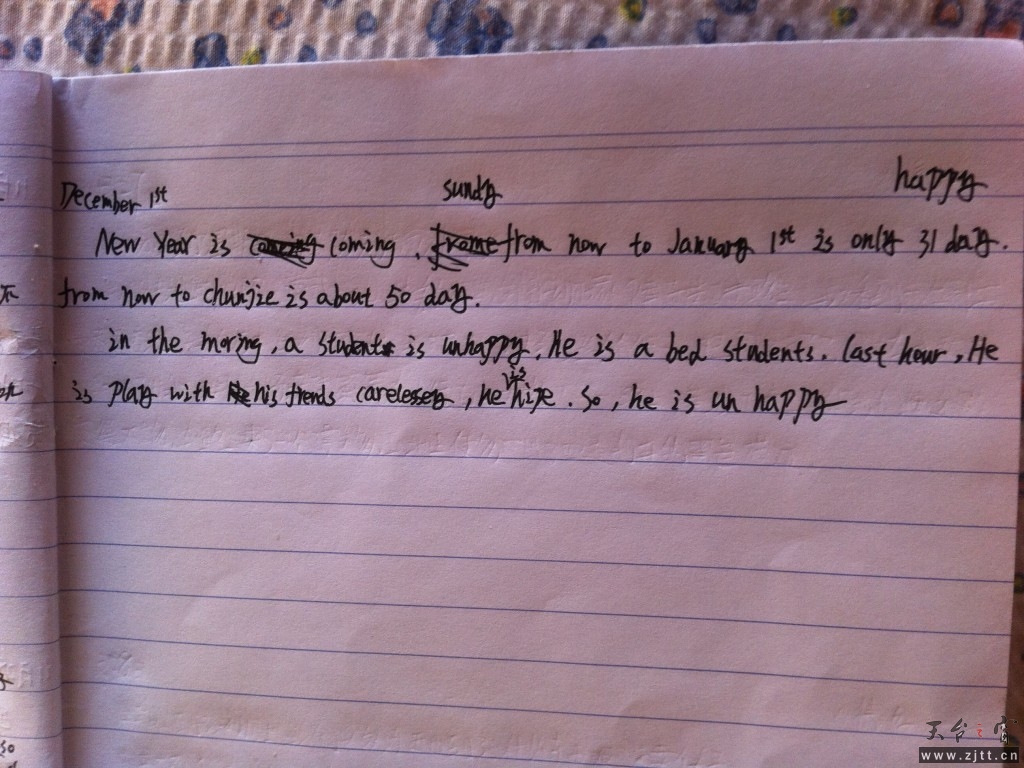 December 1st sundy happy
New Year is coming. from now to January 1st is only 31 day.
from now to chunjie is about 50 day.
in the moring, a student is unhappy. He is a bed students. last hour, He
is play with his frends carelessey, he is hipe. so, he is un happy
不
so
天台之窗
www.zjtt.cn